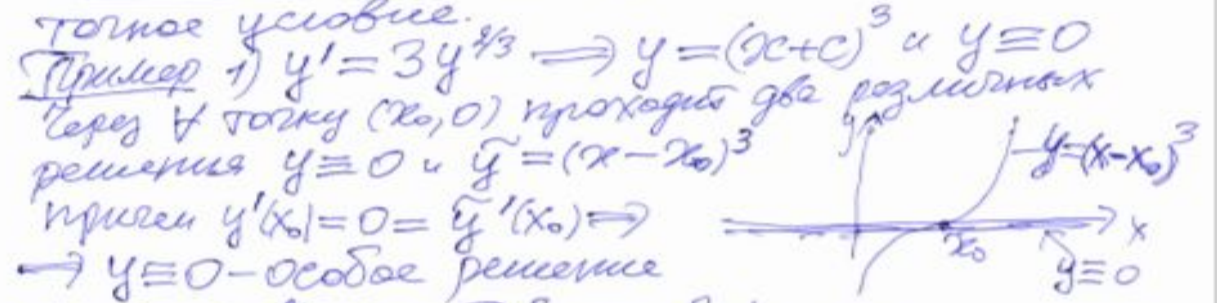 точное условие.
Пример 1) y' = 3y^{2/3} ⟹ y = (x+c)^3 и y ≡ 0
Через ∀ точку (x₀, 0) проходит два различных
решения y ≡ 0 и ỹ = (x − x₀)^3
причем y'(x₀) = 0 = ỹ'(x₀) ⟹
⟹ y ≡ 0 – особое решение
y
y=(x-x₀)^3
x
x₀
y ≡ 0